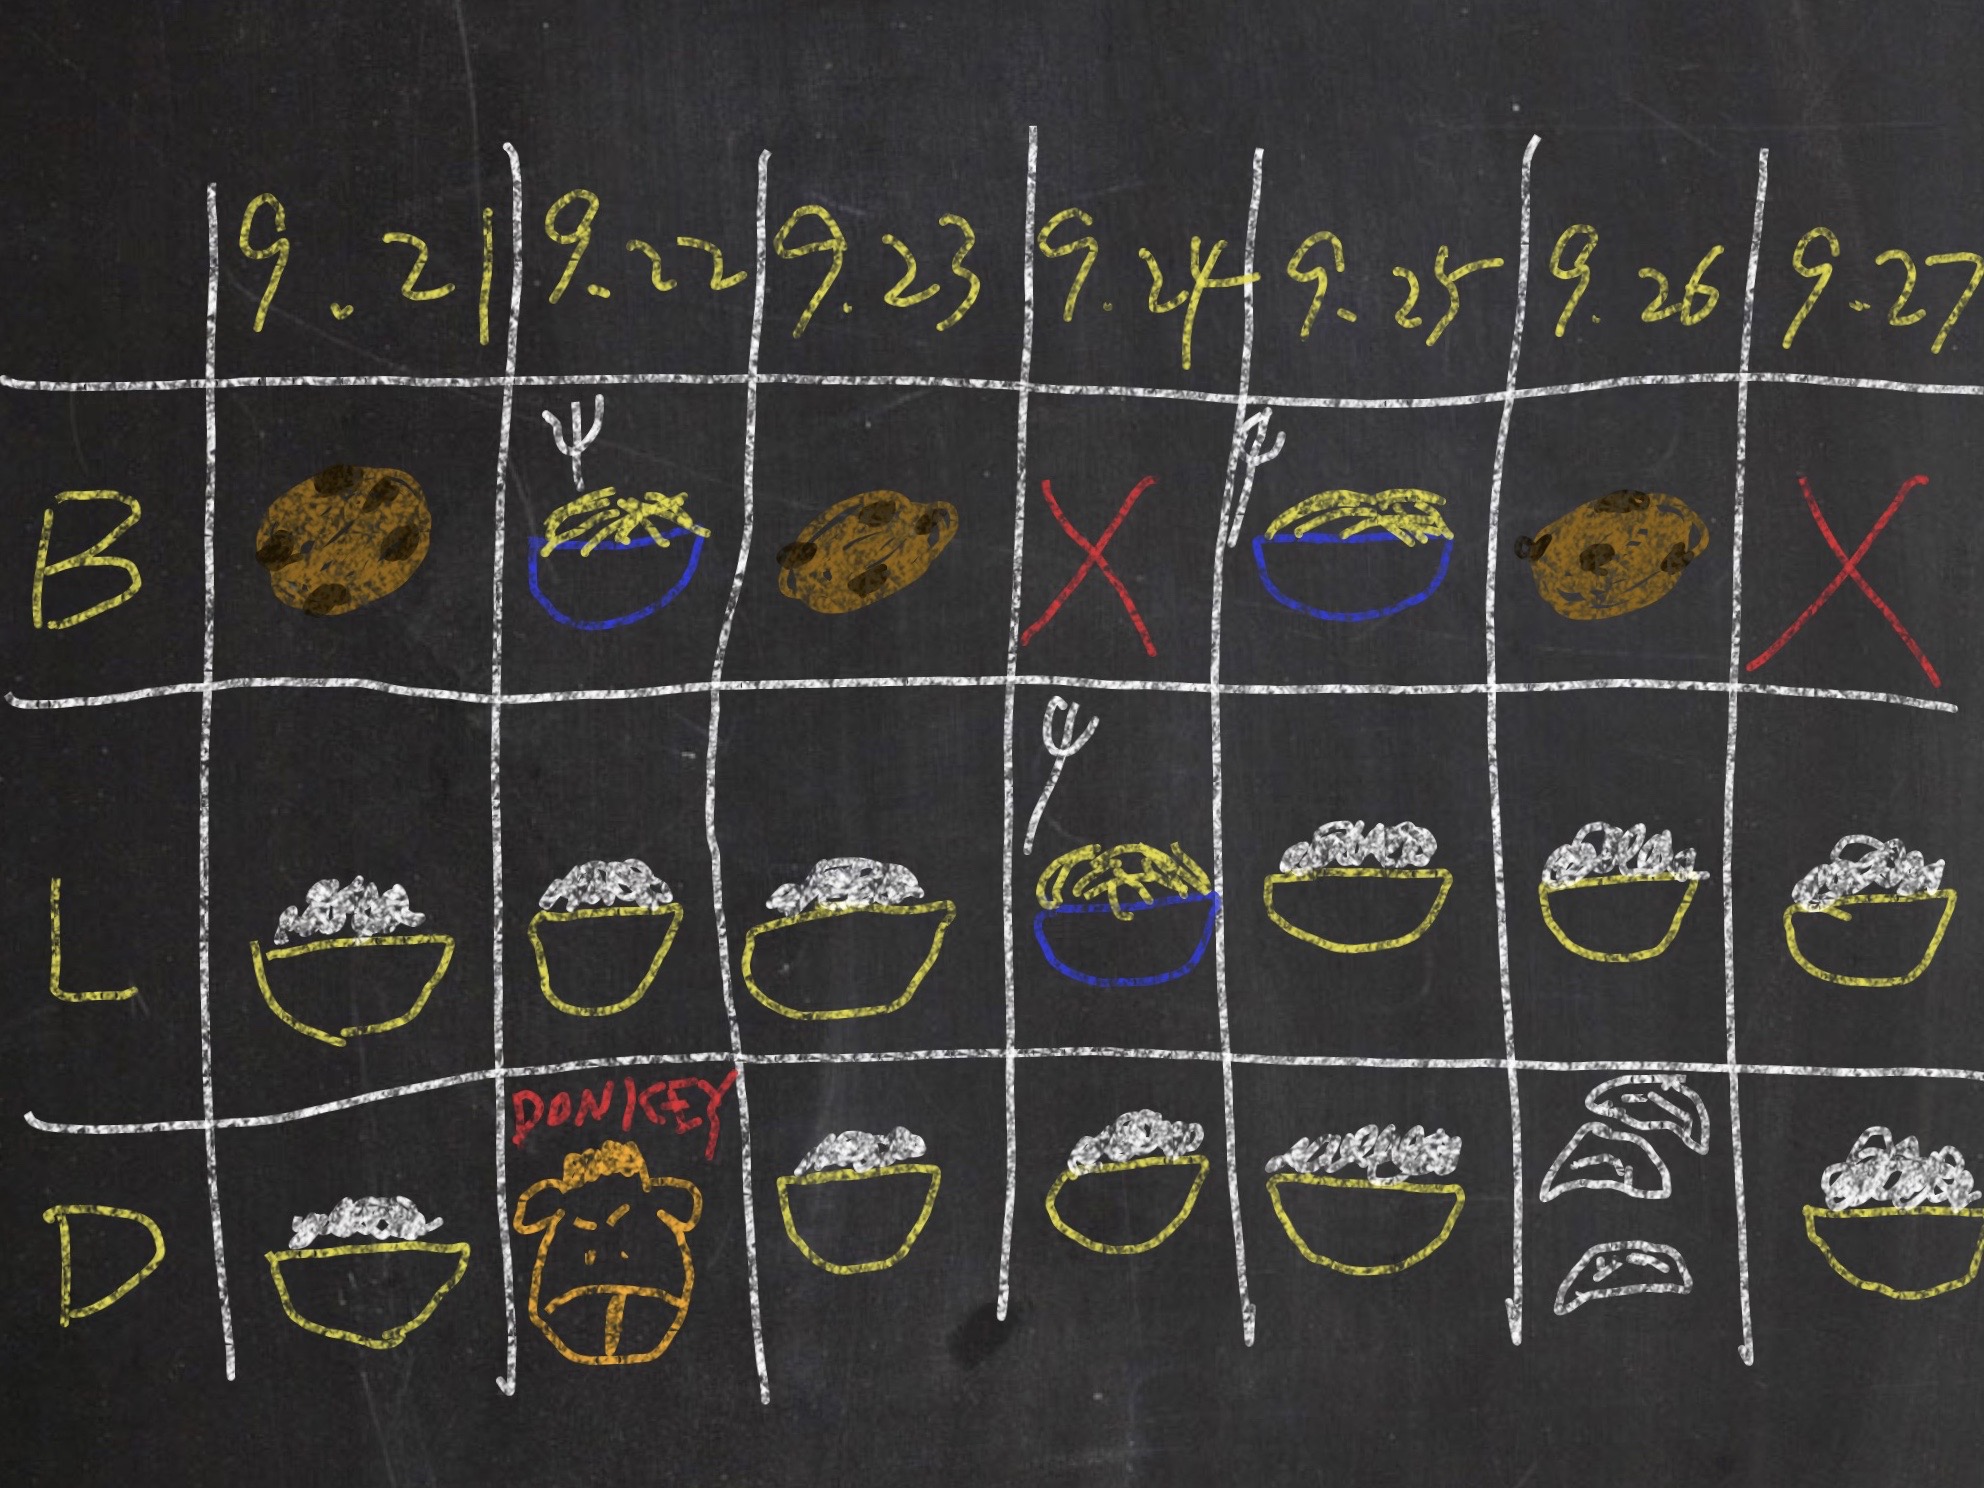 9.21 9.22 9.23 9.24 9.25 9.26 9.27
B X X
L
D DONKEY